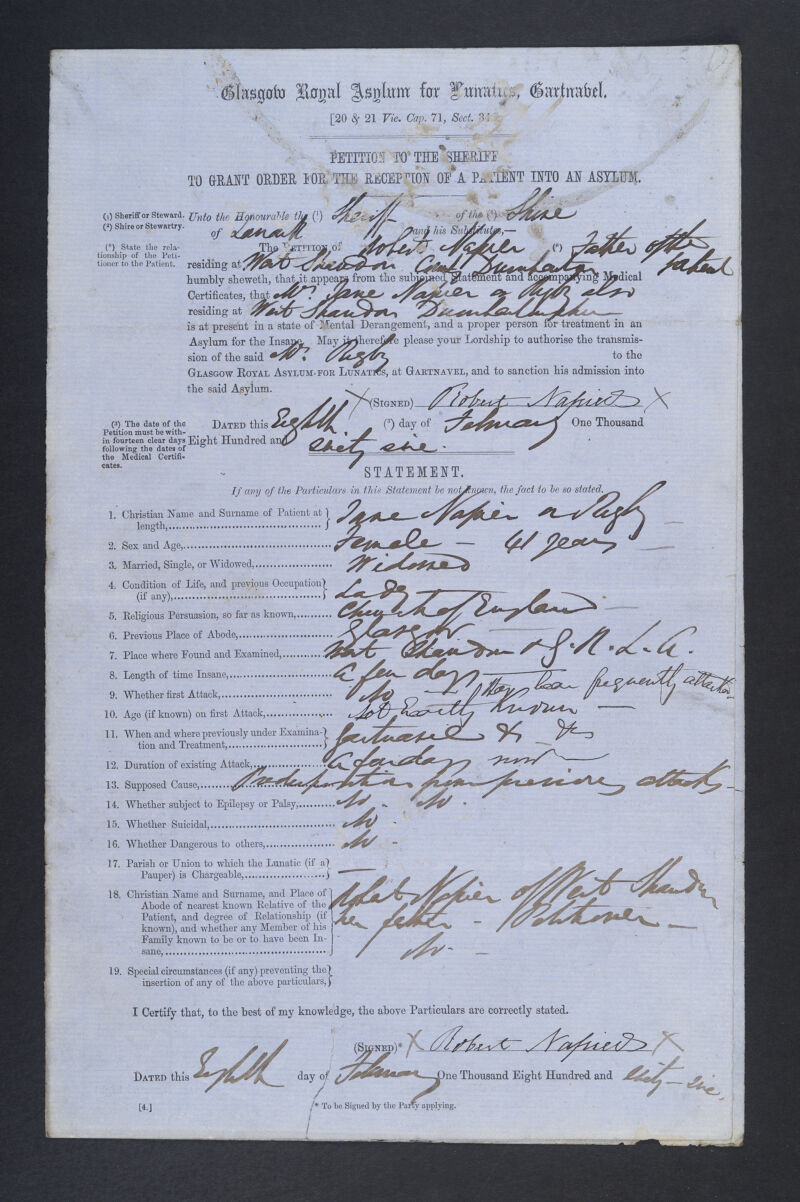 Glasgow Royal Asylum for Lunatics, Gartnavel.
[20 & 21 Vic. Cap. 71, Sect. 34
PETITION TO THE SHERIFF
TO GRANT ORDER FOR THE RECEPTION OF A PATIENT INTO AN ASYLUM.
(¹) Sheriff or Steward.
(²) Shire or Stewartry.
Unto the Honourable the (¹) Sheriff of the (²) Shire
of Lanark and his Substitutes,—
(*) State the rela-
tionship of the Peti-
tioner to the Patient.
The PETITION of Robert Napier (*) Father of the patient
residing at West Shandon Dumbarton
humbly sheweth, that it appears from the subjoined Statement and accompanying Medical
Certificates, that Mrs Jane Napier or Rigby also
residing at West Shandon Dumbartonshire
is at present in a state of Mental Derangement, and a proper person for treatment in an
Asylum for the Insane. May it therefore please your Lordship to authorise the transmis-
sion of the said Mrs Rigby to the
GLASGOW ROYAL ASYLUM FOR LUNATICS, at GARTNAVEL, and to sanction his admission into
the said Asylum.
X (SIGNED) Robert Napier X
(³) The date of the
Petition must be with-
in fourteen clear days
following the dates of
the Medical Certifi-
cates.
DATED this Eighth (³) day of February One Thousand
Eight Hundred and sixty six.
STATEMENT.
If any of the Particulars in this Statement be not known, the fact to be so stated.
1. Christian Name and Surname of Patient at length, Jane Napier or Rigby —
2. Sex and Age, Female — 41 years —
3. Married, Single, or Widowed, Widowed
4. Condition of Life, and previous Occupation (if any), Lady
5. Religious Persuasion, so far as known, Church of England —
6. Previous Place of Abode, Glasgow —
7. Place where Found and Examined, West Shandon & G. R. L. A.
8. Length of time Insane, a few days —
9. Whether first Attack, No — Has been frequently attacked
10. Age (if known) on first Attack, Not Exactly known —
11. When and where previously under Examina-
tion and Treatment, Gartnavel & &
12. Duration of existing Attack, a few days
13. Supposed Cause, Predisposition from previous attacks —
14. Whether subject to Epilepsy or Palsy, No. No.
15. Whether Suicidal, No.
16. Whether Dangerous to others, No.
17. Parish or Union to which the Lunatic (if a
Pauper) is Chargeable, —
18. Christian Name and Surname, and Place of
Abode of nearest known Relative of the
Patient, and degree of Relationship (if
known), and whether any Member of his
Family known to be or to have been In-
sane,
Robert Napier of West Shandon
her father — Petitioner —
No. —
19. Special circumstances (if any) preventing the
insertion of any of the above particulars,
I Certify that, to the best of my knowledge, the above Particulars are correctly stated.
(SIGNED)* X Robert Napier X
DATED this Eighth day of February One Thousand Eight Hundred and sixty-six.
[4.]
* To be Signed by the Party applying.